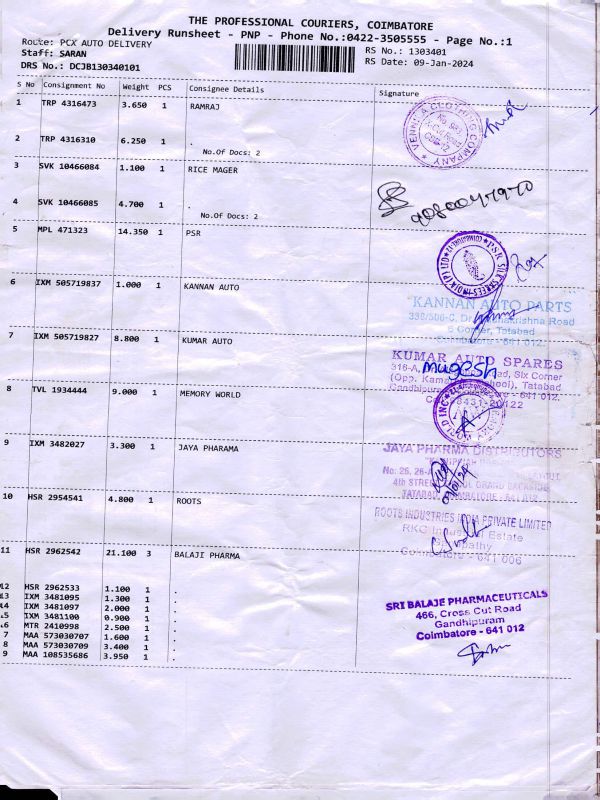 THE PROFESSIONAL COURIERS, COIMBATORE
Delivery Runsheet - PNP - Phone No.:0422-3505555 - Page No.:1
Route: PCX AUTO DELIVERY
Staff: SARAN
DRS No.: DCJB130340101
RS No.: 1303401
RS Date: 09-Jan-2024
S No Consignment No Weight PCS Consignee Details Signature
1 TRP 4316473 3.650 1 RAMRAJ
VENNILA CLOTHING COMPANY
2 TRP 4316310 6.250 1 .
No.Of Docs: 2
3 SVK 10466084 1.100 1 RICE MAGER
4 SVK 10466085 4.700 1 .
No.Of Docs: 2
5 MPL 471323 14.350 1 PSR
6 IXM 505719837 1.000 1 KANNAN AUTO
KANNAN AUTO PARTS
Coimbatore - 641 012.
7 IXM 505719827 8.800 1 KUMAR AUTO
KUMAR AUTO SPARES
mugesh
8 TVL 1934444 9.000 1 MEMORY WORLD
9 IXM 3482027 3.300 1 JAYA PHARAMA
JAYA PHARMA DISTRIBUTORS
10 HSR 2954541 4.800 1 ROOTS
ROOTS INDUSTRIES INDIA PRIVATE LIMITED
Coimbatore - 641 006
11 HSR 2962542 21.100 3 BALAJI PHARMA
12 HSR 2962533 1.100 1 .
13 IXM 3481095 1.300 1 .
14 IXM 3481097 2.000 1 .
.5 IXM 3481100 0.900 1 .
.6 MTR 2410998 2.500 1 .
7 MAA 573030707 1.600 1 .
8 MAA 573030709 3.400 1 .
9 MAA 108535686 3.950 1 .
SRI BALAJE PHARMACEUTICALS
466, Cross Cut Road
Gandhipuram
Coimbatore - 641 012